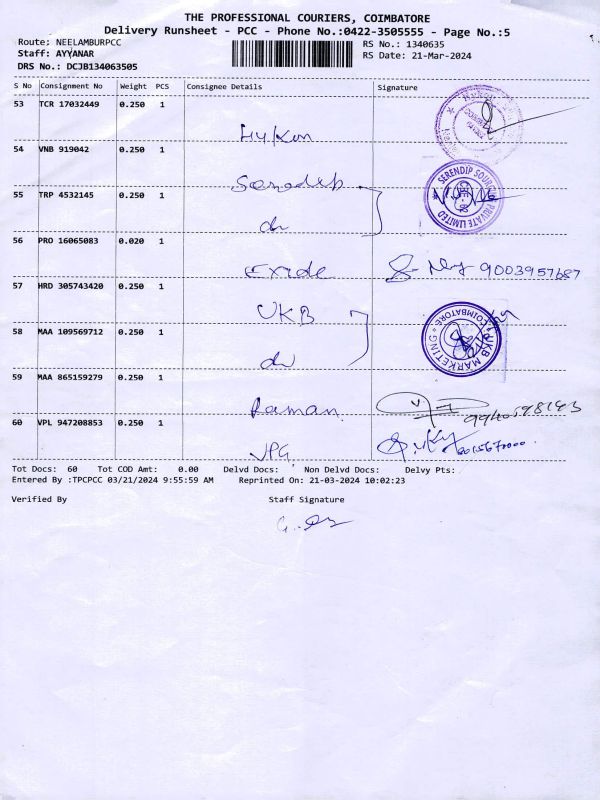 THE PROFESSIONAL COURIERS, COIMBATORE
Delivery Runsheet - PCC - Phone No.:0422-3505555 - Page No.:5
Route: NEELAMBURPCC RS No.: 1340635
Staff: AYYANAR RS Date: 21-Mar-2024
DRS No.: DCJB134063505
S No Consignment No Weight PCS Consignee Details Signature
53 TCR 17032449 0.250 1
54 VNB 919042 0.250 1
SERENDIP SOURCING PRIVATE LIMITED
55 TRP 4532145 0.250 1
56 PRO 16065083 0.020 1
Exide 9003957687
57 HRD 305743420 0.250 1
UKB
UKB MARKETING COIMBATORE
58 MAA 109569712 0.250 1
59 MAA 865159279 0.250 1
Raman
60 VPL 947208853 0.250 1
JPG
Tot Docs: 60 Tot COD Amt: 0.00 Delvd Docs: Non Delvd Docs: Delvy Pts:
Entered By :TPCPCC 03/21/2024 9:55:59 AM Reprinted On: 21-03-2024 10:02:23
Verified By Staff Signature